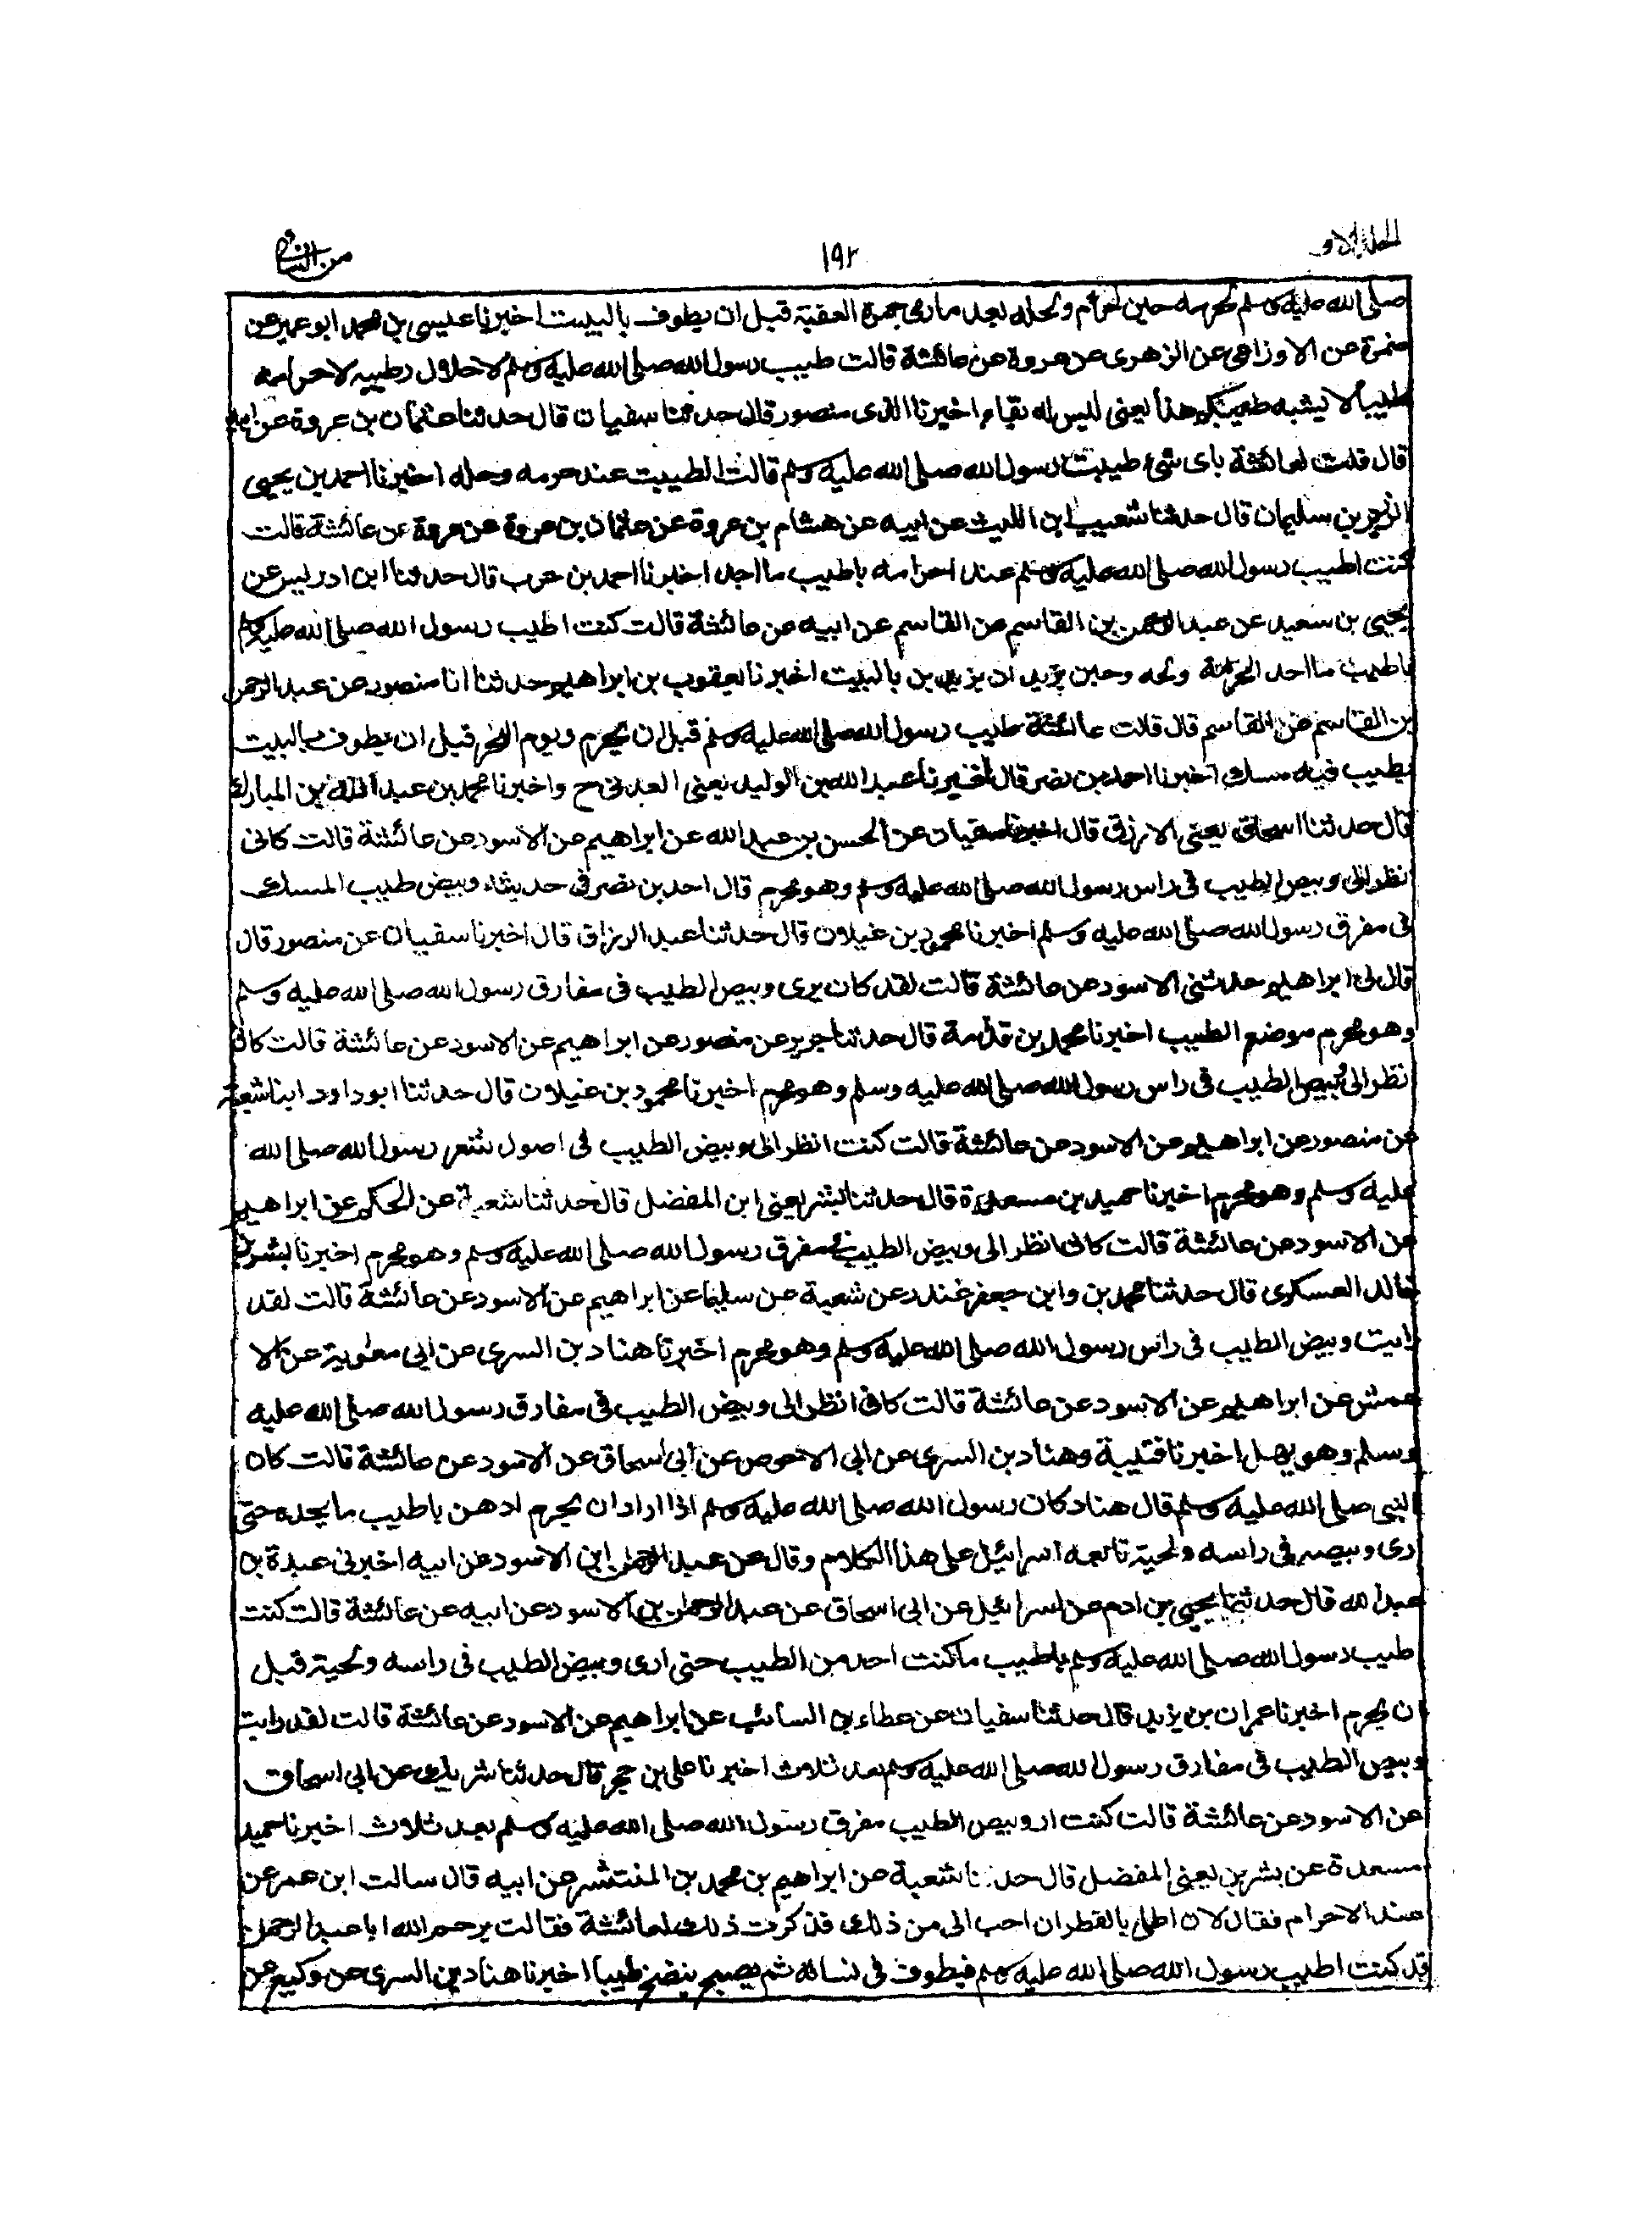 المجلد الاول
١٩٢
من النسائى
صلى الله عليه وسلم لحرمه حين احرم ولحله بعد ما رمى جمرة العقبة قبل ان يطوف بالبيت اخبرنا عيسى بن محمد ابو عمير عن
ضمرة عن الاوزاعى عن الزهرى عن عروة عن عائشة قالت طيبت رسول الله صلى الله عليه وسلم لاحلال وطيبه لاحرامه
طيبا لا يشبه طيبكم هذا يعنى ليس له بقاء اخبرنا منصور قال حدثنا سفيان قال حدثنا عثمان بن عروة عن ابيه
قال قلت لعائشة باى شئ طيبت رسول الله صلى الله عليه وسلم قالت الطيبت عند حرمه وحله اخبرنا احمد بن يحيى
الوزير بن سليمان قال حدثنا شعيب ابن الليث عن ابيه عن هشام بن عروة عن عثمان بن عروة عن عروة عن عائشة قالت
كنت اطيب رسول الله صلى الله عليه وسلم عند احرامه باطيب ما اجد اخبرنا احمد بن حرب قال حدثنا ابن ادريس عن
يحيى بن سعيد عن عبد الرحمن بن القاسم عن القاسم عن ابيه عن عائشة قالت كنت اطيب رسول الله صلى الله عليه وسلم
باطيب ما احد ولحه وحين يريد ان يزيد بن بالبيت اخبرنا يعقوب بن ابراهيم حدثنا انا منصور عن عبد الرحمن
بن القاسم عن القاسم قال قالت عائشة طيب رسول الله صلى الله عليه وسلم قبل ان يحرم ويوم النحر قبل ان يطوف بالبيت
بطيب فيه مسك اخبرنا احمد بن نصر قال اخبرنا عبد الله بن الوليد يعنى العدنى ح واخبرنا محمد بن عبد الله بن المبارك
قال حدثنا اسحاق يعنى الازرق قال اخبرنا سفيان عن الحسن بن عبد الله عن ابراهيم عن الاسود عن عائشة قالت كانى
انظر الى وبيص الطيب فى راس رسول الله صلى الله عليه وسلم وهو محرم قال احمد بن نصر فى حديثه وبيض طيب المسك
فى مفرق رسول الله صلى الله عليه وسلم اخبرنا محمود بن غيلان قال حدثنا عبد الرزاق قال اخبرنا سفيان عن منصور قال
قال لى ابراهيم حدثنى الاسود عن عائشة قالت لقد كان يرى وبيص الطيب فى مفارق رسول الله صلى الله عليه وسلم
وهو محرم موضع الطيب اخبرنا محمد بن قدامة قال حدثنا جرير عن منصور عن ابراهيم عن الاسود عن عائشة قالت كانى
انظر الى وبيص الطيب فى راس رسول الله صلى الله عليه وسلم وهو محرم اخبرنا محمود بن غيلان قال حدثنا ابو داود ابنا شعبة
عن منصور عن ابراهيم عن الاسود عن عائشة قالت كنت انظر الى وبيض الطيب فى اصول شعر رسول الله صلى الله
عليه وسلم وهو محرم اخبرنا حميد بن مسعدة قال حدثنا بشر يعنى ابن المفضل قال حدثنا شعبة عن الحكم عن ابراهيم
عن الاسود عن عائشة قالت كانى انظر الى وبيض الطيب فى مفرق رسول الله صلى الله عليه وسلم وهو محرم اخبرنا بشر بن
خالد العسكرى قال حدثنا محمد بن وابن جعفر غندر عن شعبة عن سليما عن ابراهيم عن الاسود عن عائشة قالت لقد
رايت وبيض الطيب فى راس رسول الله صلى الله عليه وسلم وهو محرم اخبرنا هناد بن السرى عن ابى معوية عن الا
عمش عن ابراهيم عن الاسود عن عائشة قالت كانى انظر الى وبيض الطيب فى مفارق رسول الله صلى الله عليه
وسلم وهو يهل اخبرنا قتيبة وهناد بن السرى عن ابى الاحوص عن ابى اسحاق عن الاسود عن عائشة قالت كان
النبى صلى الله عليه وسلم قال هناد كان رسول الله صلى الله عليه وسلم اذا اراد ان يحرم ادهن باطيب ما يجده حتى
ارى وبيصه فى راسه ولحيته تابعه اسرائيل على هذا الكلام وقال عن عبد الرحمن ابن الاسود عن ابيه اخبرنى عبدة بن
عبد الله قال حدثنا يحيى بن ادم عن اسرائيل عن ابى اسحاق عن عبد الرحمن بن الاسود عن ابيه عن عائشة قالت كنت
اطيب رسول الله صلى الله عليه وسلم باطيب ما كنت احد من الطيب حتى ارى وبيض الطيب فى راسه ولحيته قبل
ان يحرم اخبرنا عمران بن يزيد قال حدثنا سفيان عن عطاء بن السائب عن ابراهيم عن الاسود عن عائشة قالت لقد رايت
وبيص الطيب فى مفارق رسول الله صلى الله عليه وسلم بعد ثلاث اخبرنا على بن حجر قال حدثنا شريك عن ابى اسحاق
عن الاسود عن عائشة قالت كنت ار وبيص الطيب مفرق رسول الله صلى الله عليه وسلم بعد ثلاث اخبرنا حميد
مسعدة عن بشر بن يعنى المفضل قال حدثنا شعبة عن ابراهيم بن محمد بن المنتشر عن ابيه قال سالت ابن عمر عن
عند الاحرام فقال لان اطلى بالقطران احب الى من ذلك فذكرت ذلك لعائشة فقالت يرحم الله ابا عبد الرحمن
قد كنت اطيب رسول الله صلى الله عليه وسلم فيطوف فى نسائه ثم يصبح ينضخ طيبا اخبرنا هناد بن السرى عن وكيع عن